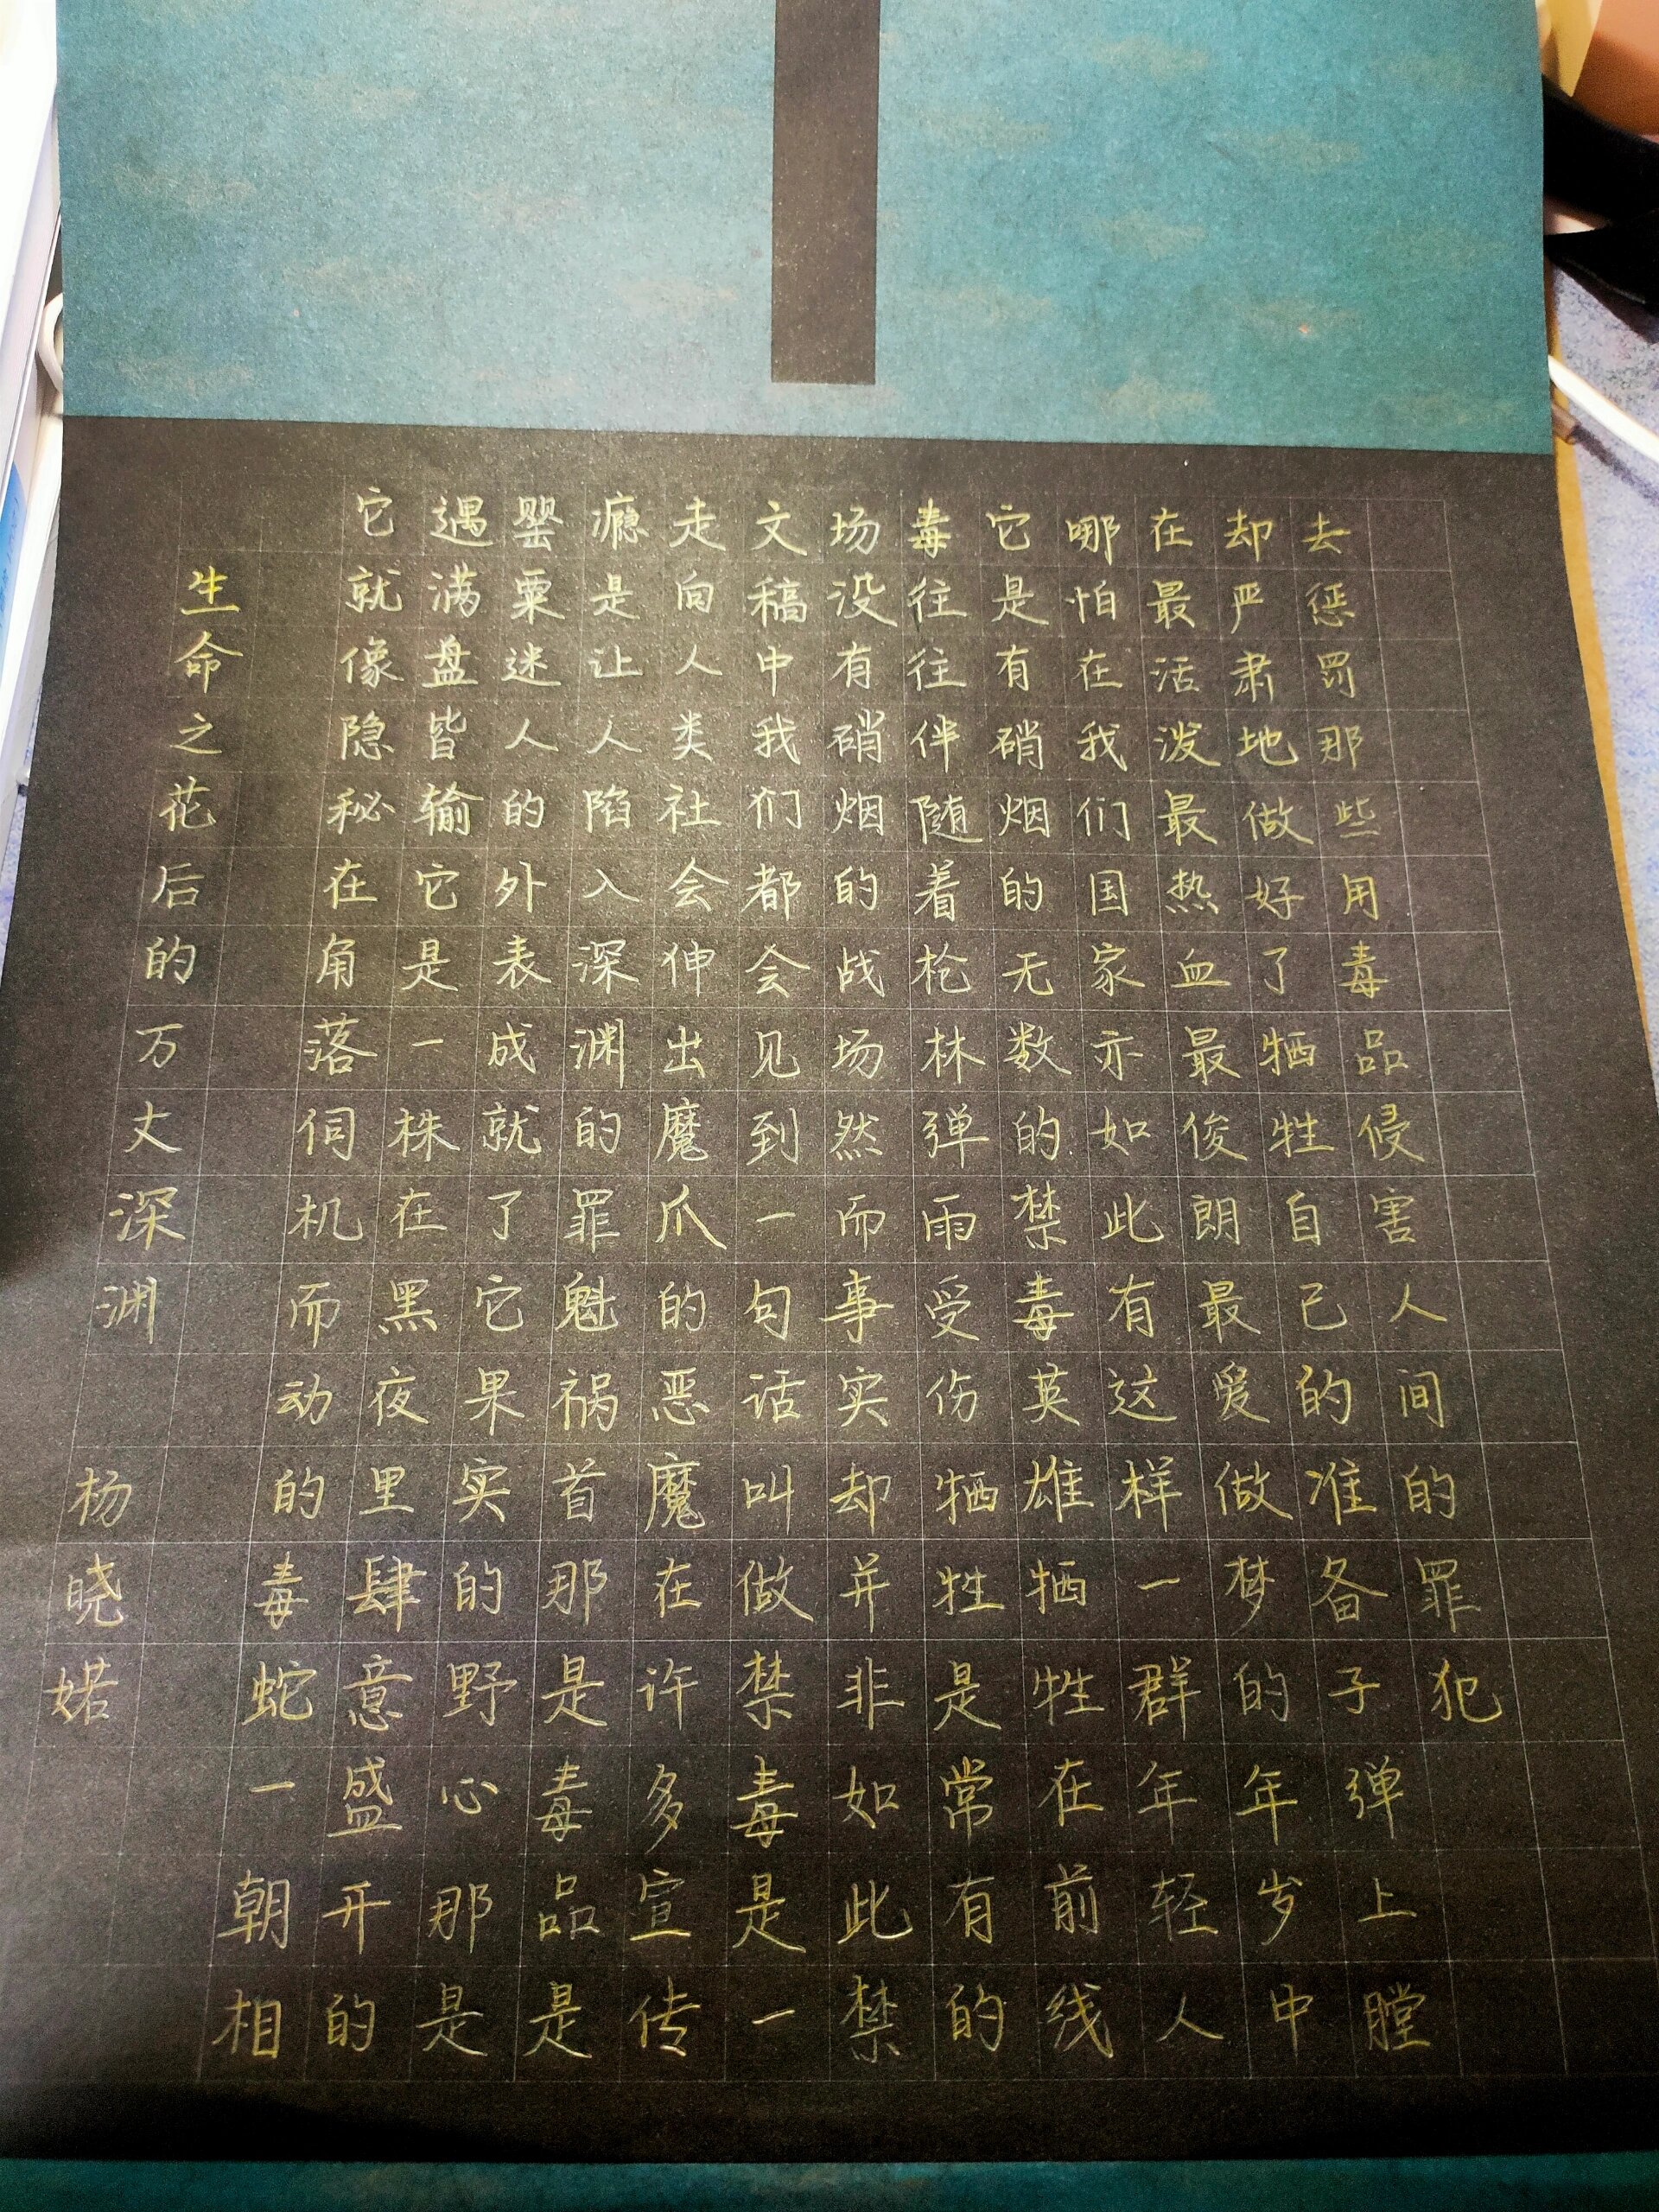 生命之花后的万丈深渊 杨晓婼
它就像隐秘在角落伺机而动的毒蛇一朝相
遇满盘皆输它是一株在黑夜里肆意盛开的
罂粟迷人的外表成就了它果实的野心那是
瘾是让人陷入深渊的罪魁祸首那是毒品是
走向人类社会伸出魔爪的恶魔在许多宣传
文稿中我们都会见到一句话叫做禁毒是一
场没有硝烟的战场然而事实却并非如此禁
毒往往伴随着枪林弹雨受伤牺牲是常有的
它是有硝烟的无数的禁毒英雄牺牲在前线
哪怕在我们国家亦如此有这样一群年轻人
在最活泼最热血最俊朗最爱做梦的年岁中
却严肃地做好了牺牲自己的准备子弹上膛
去惩罚那些用毒品侵害人间的罪犯